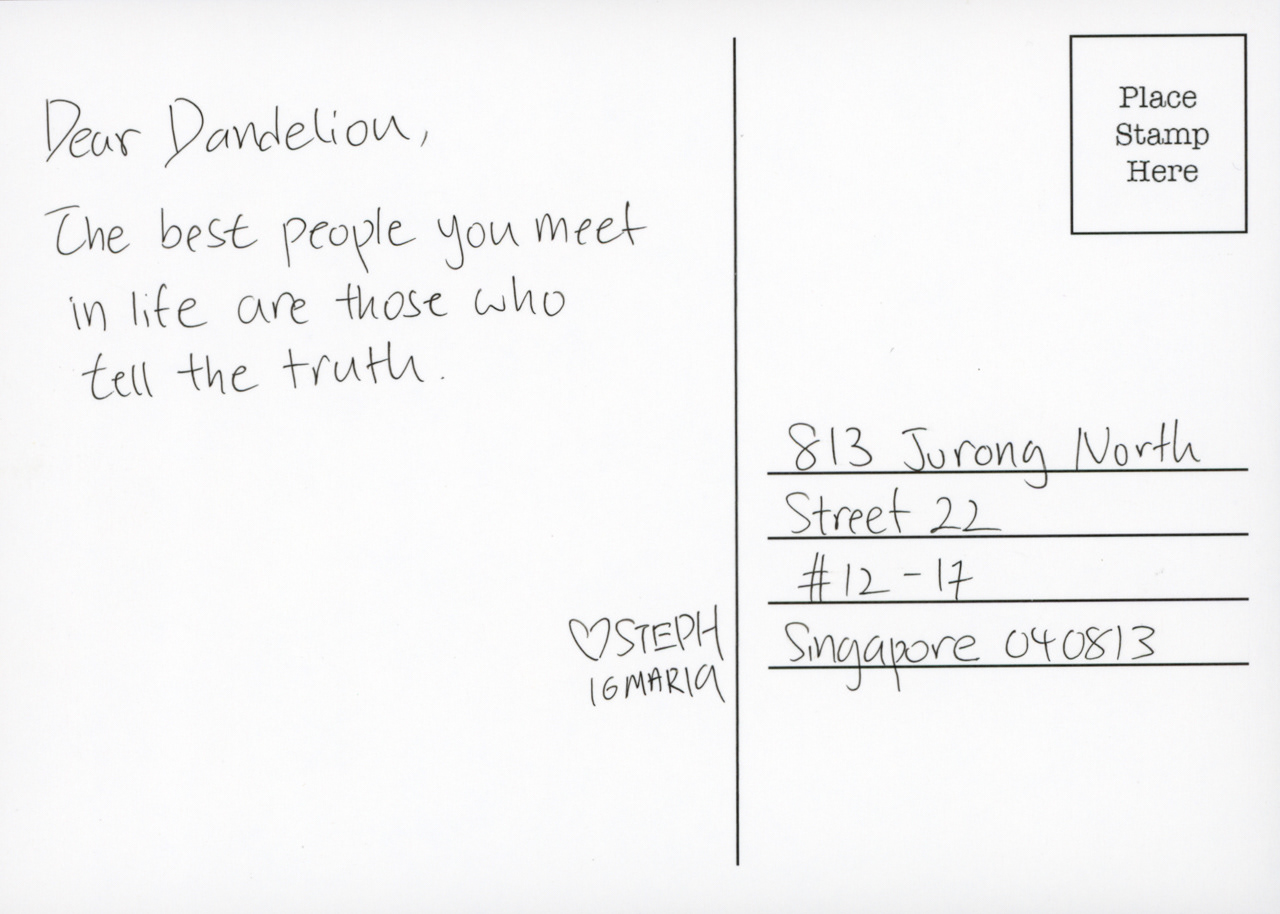 Dear Dandelion,
The best people you meet
in life are those who
tell the truth.
♡STEPH
16MAR19
Place
Stamp
Here
813 Jurong North
Street 22
#12-17
Singapore 040813